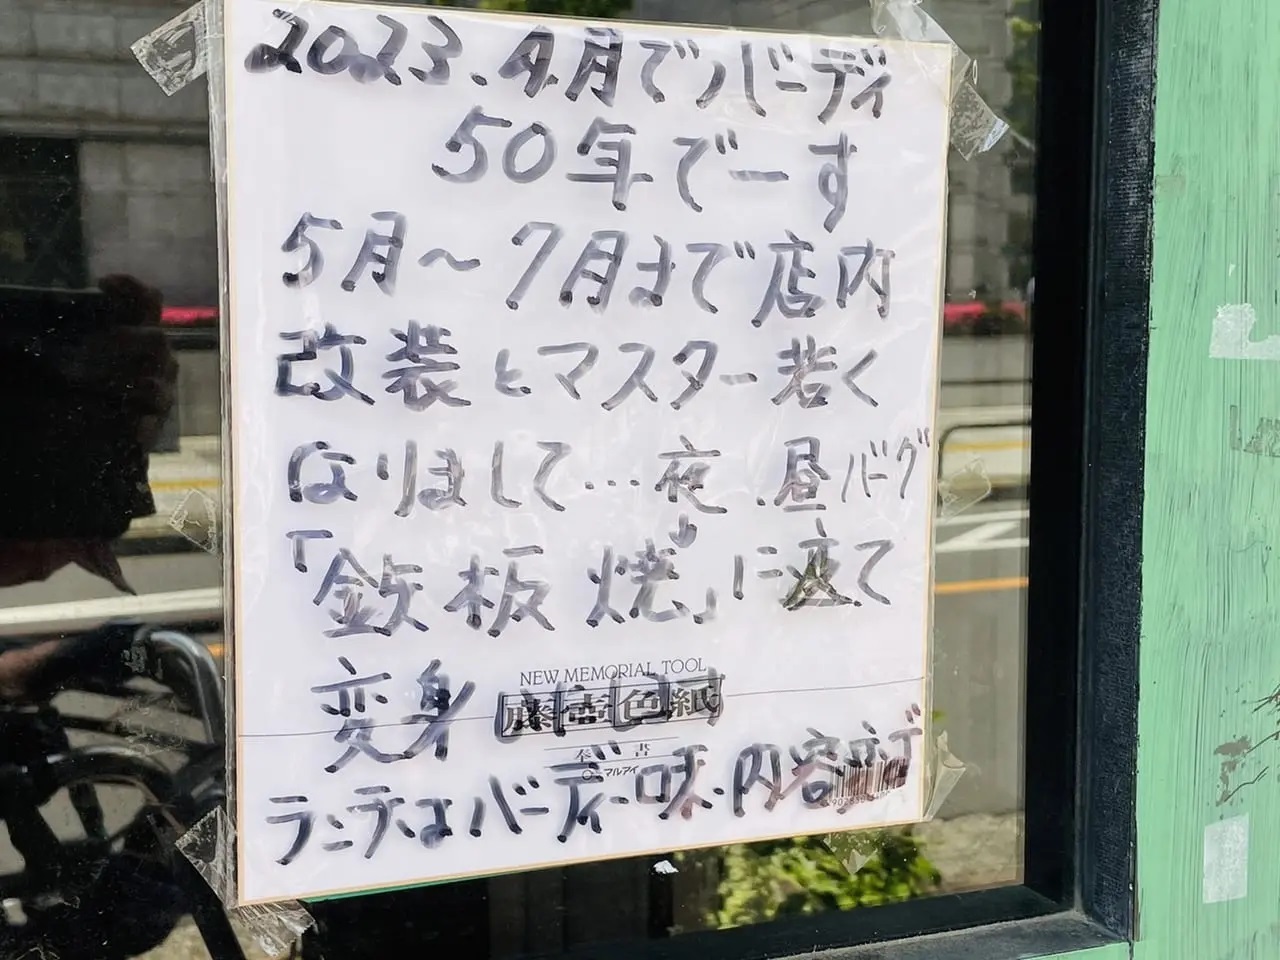 2023.4月でバーディ
50年でーす
5月〜7月まで店内
改装とマスター若く
なりまして…夜、昼バーグ
「鉄板焼」に て
変身します
NEW MEMORIAL TOOL
色紙
奉書
マルアイ
ランチはバーディー味・内容